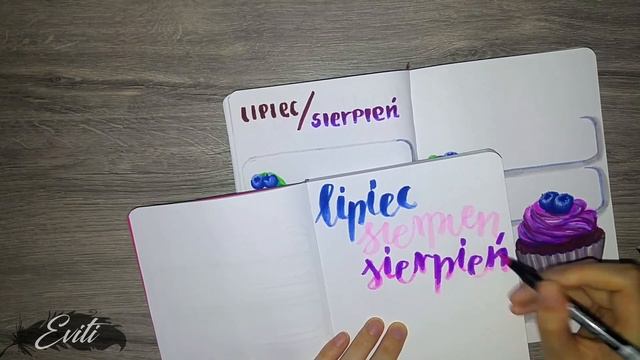 LIPIEC/SIERPIEŃ
lipiec
sierpien
sierpień
Eviti